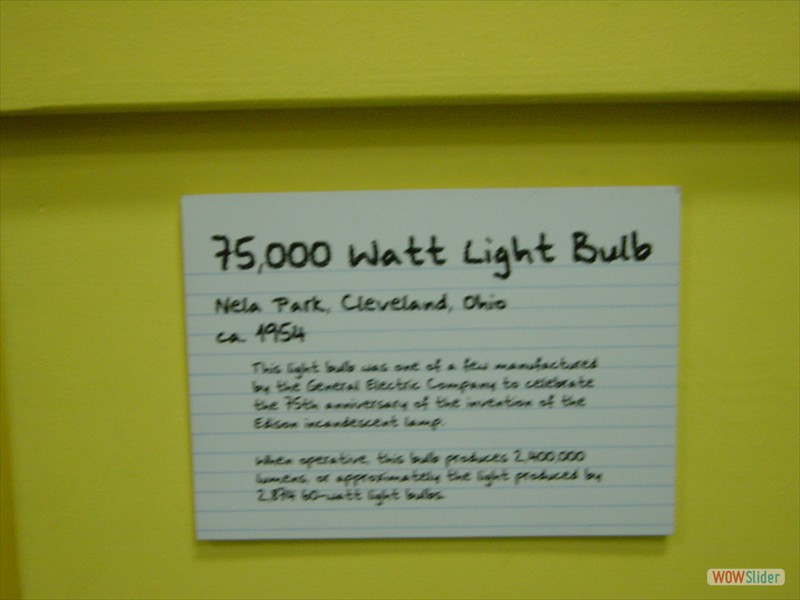 75,000 Watt Light Bulb
Nela Park, Cleveland, Ohio
ca. 1954
This light bulb was one of a few manufactured
by the General Electric Company to celebrate
the 75th anniversary of the invention of the
Edison incandescent lamp.
When operative, this bulb produces 2,400,000
lumens, or approximately the light produced by
2,874 60-watt light bulbs.
WOWSlider